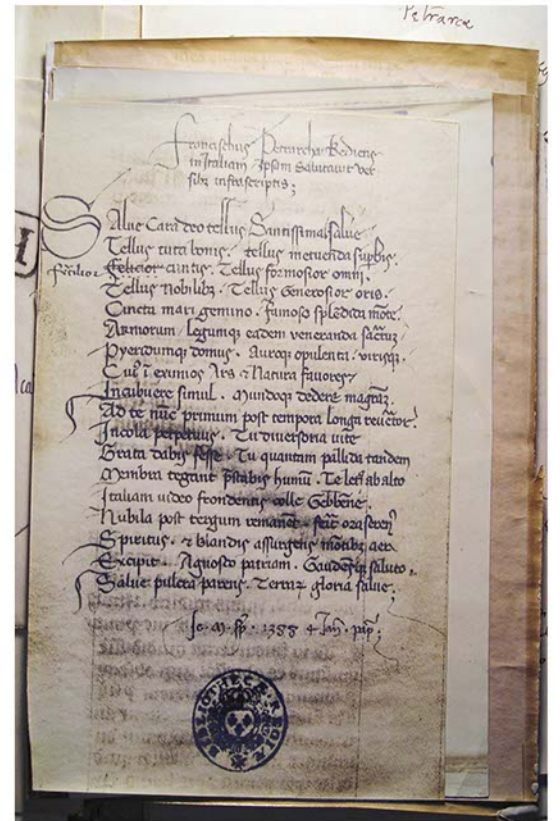 Petrarca
Franciscus Petrarcha Rediens
in Italiam Ipsam Salutauit ver
sibz infrascriptis;
Salue Cara deo tellus Sanctissima salue
Tellus tuta bonis / tellus metuenda supbis.
fertilior
Felicior cuntis. Tellus formosior omni.
Tellus Nobilibz. Tellus Generosior oris.
Cincta mari gemino. Famoso splēdida mōte.
Armorum / legumqz eadem veneranda
Pyeridumqz domus. Auroqz opulenta / virisqz.
Cuius ī eximios Ars & Natura fauores /
Incubuere simul. Mundoqz dedere magistrā.
Ad te nūc primum post tempora longa
Incola perpetuus. Tu diuersoria vite
Grata dabis fesse. Tu quantam pallida tandem
Membra tegant prestabis humū. Te letus ab alto
Italiam video frondentis colle Gebbene.
Nubila post tergum remanēt. ora
Spiritus. & blandis assurgens motibus aer
Excipit. Agnosco patriam. Gaudensqz saluto.
Salue pulcra parens. Terrarz gloria salue;
1388 4
BIBLIOTHECÆ REGIÆ